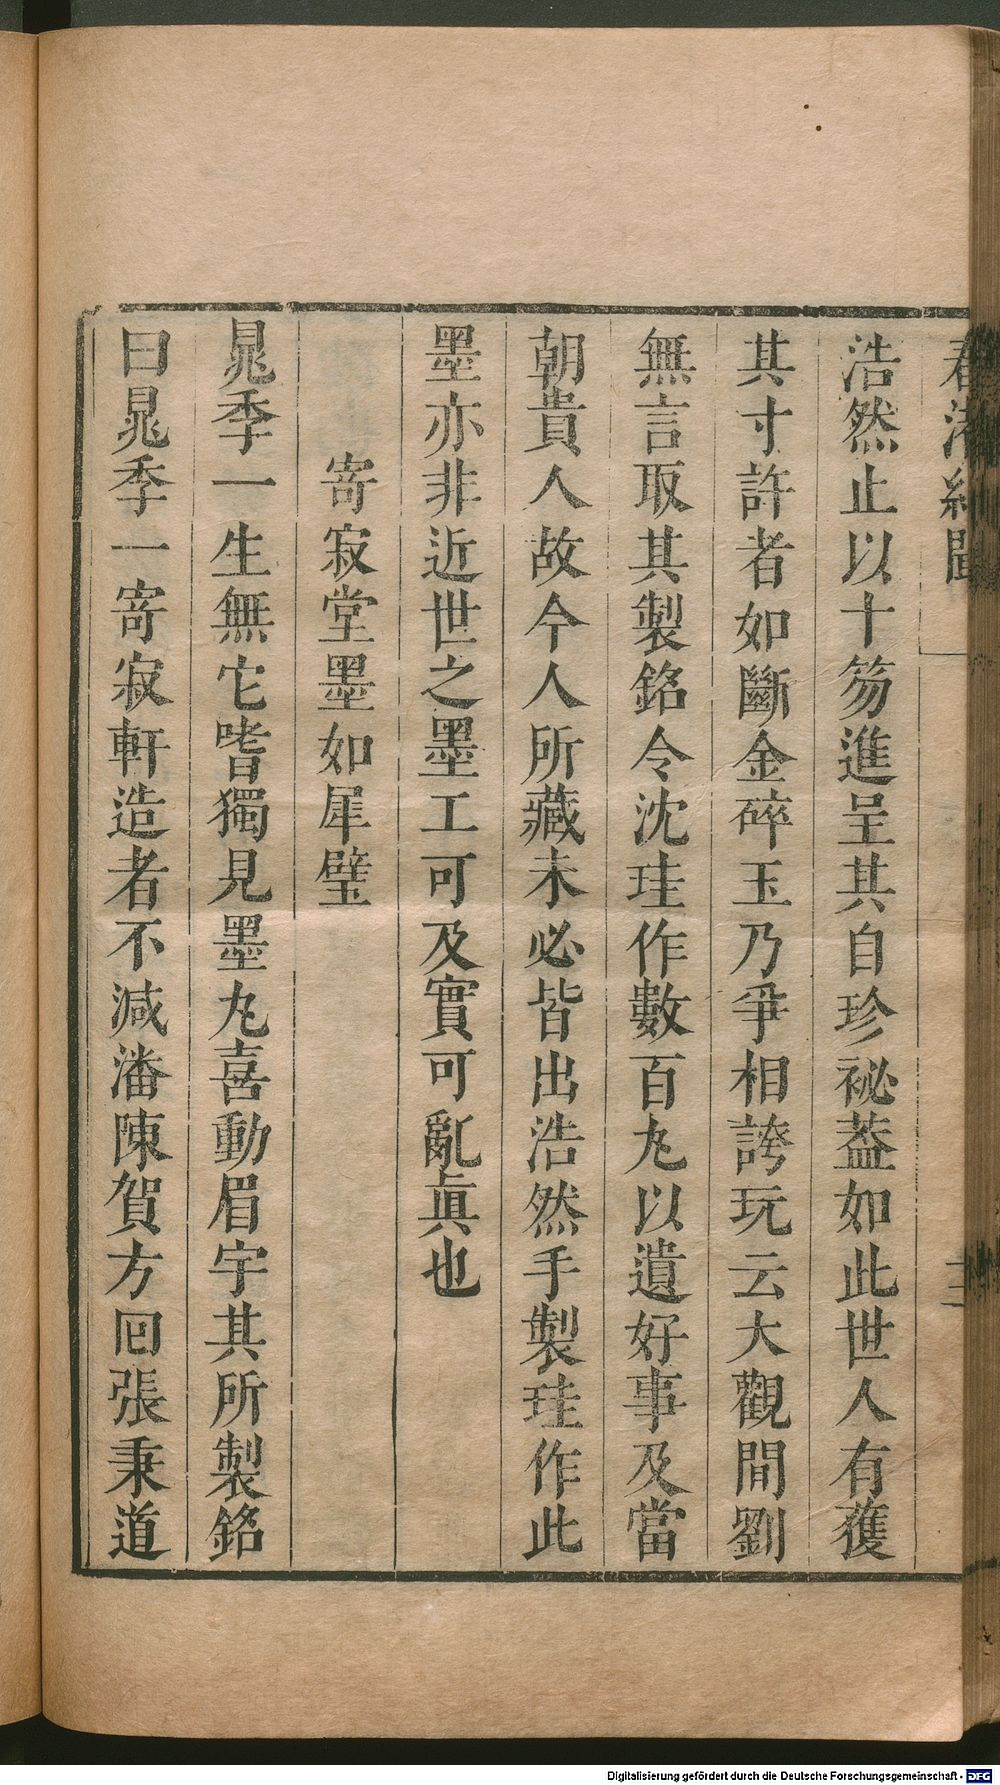 春渚紀聞
二
浩然止以十笏進呈其自珍祕葢如此世人有獲
其寸許者如斷金碎玉乃爭相誇玩云大觀間劉
無言取其製銘令沈珪作數百丸以遺好事及當
朝貴人故今人所藏未必皆出浩然手製珪作此
墨亦非近世之墨工可及實可亂眞也
寄寂堂墨如犀璧
晁季一生無它嗜獨見墨丸喜動眉宇其所製銘
曰晁季一寄寂軒造者不減潘陳賀方囘張秉道
Digitalisierung gefördert durch die Deutsche Forschungsgemeinschaft - DFG